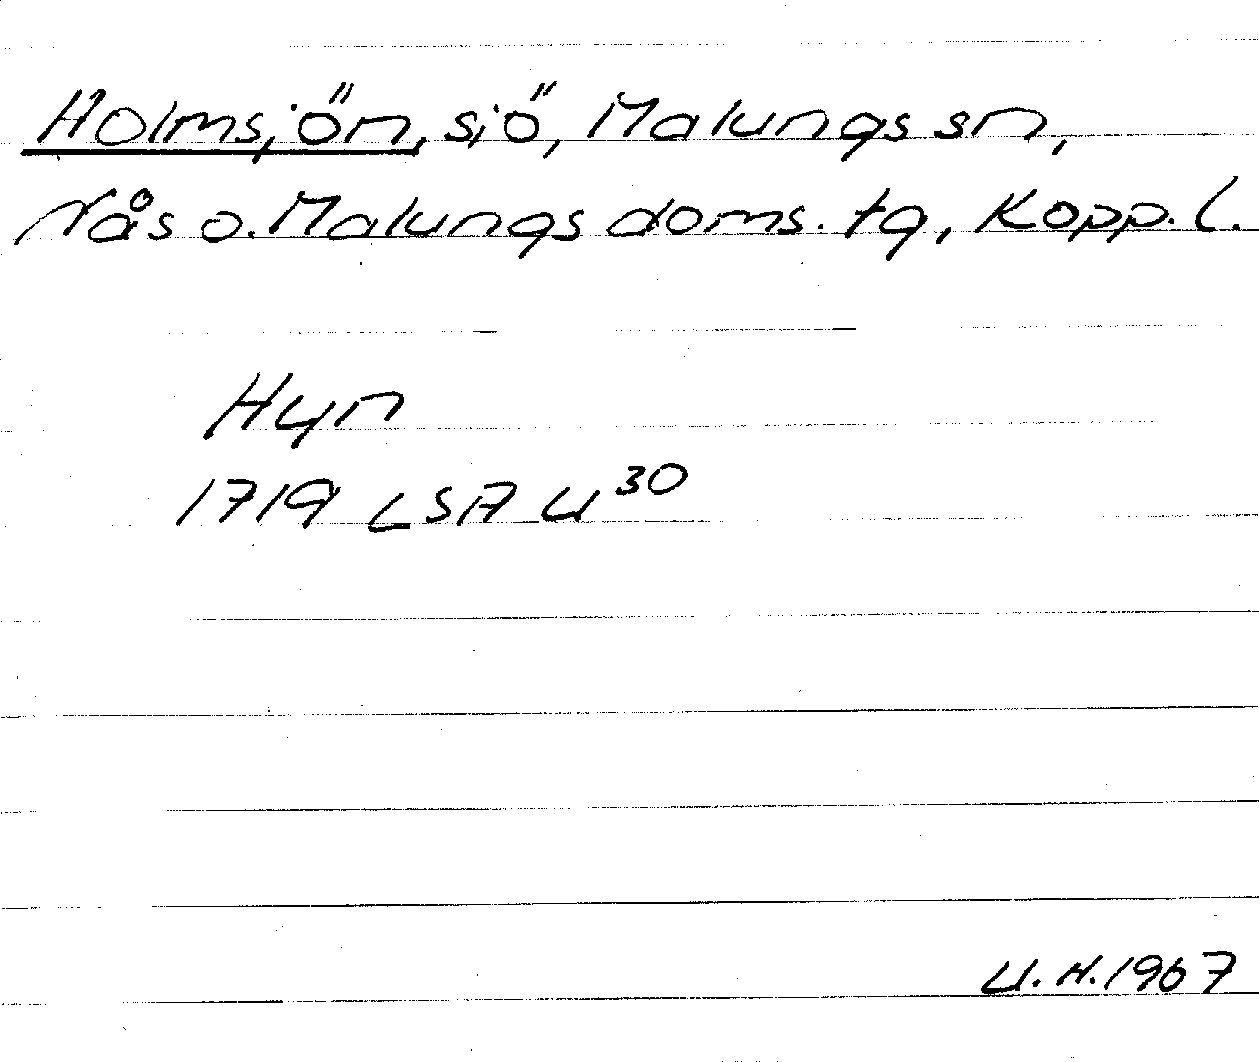 Holmsjön, sjö, Malungs sn,
Nås o. Malungs doms. tg, Kopp. l.
Hyn
1719 LSA U30
U.H.1967